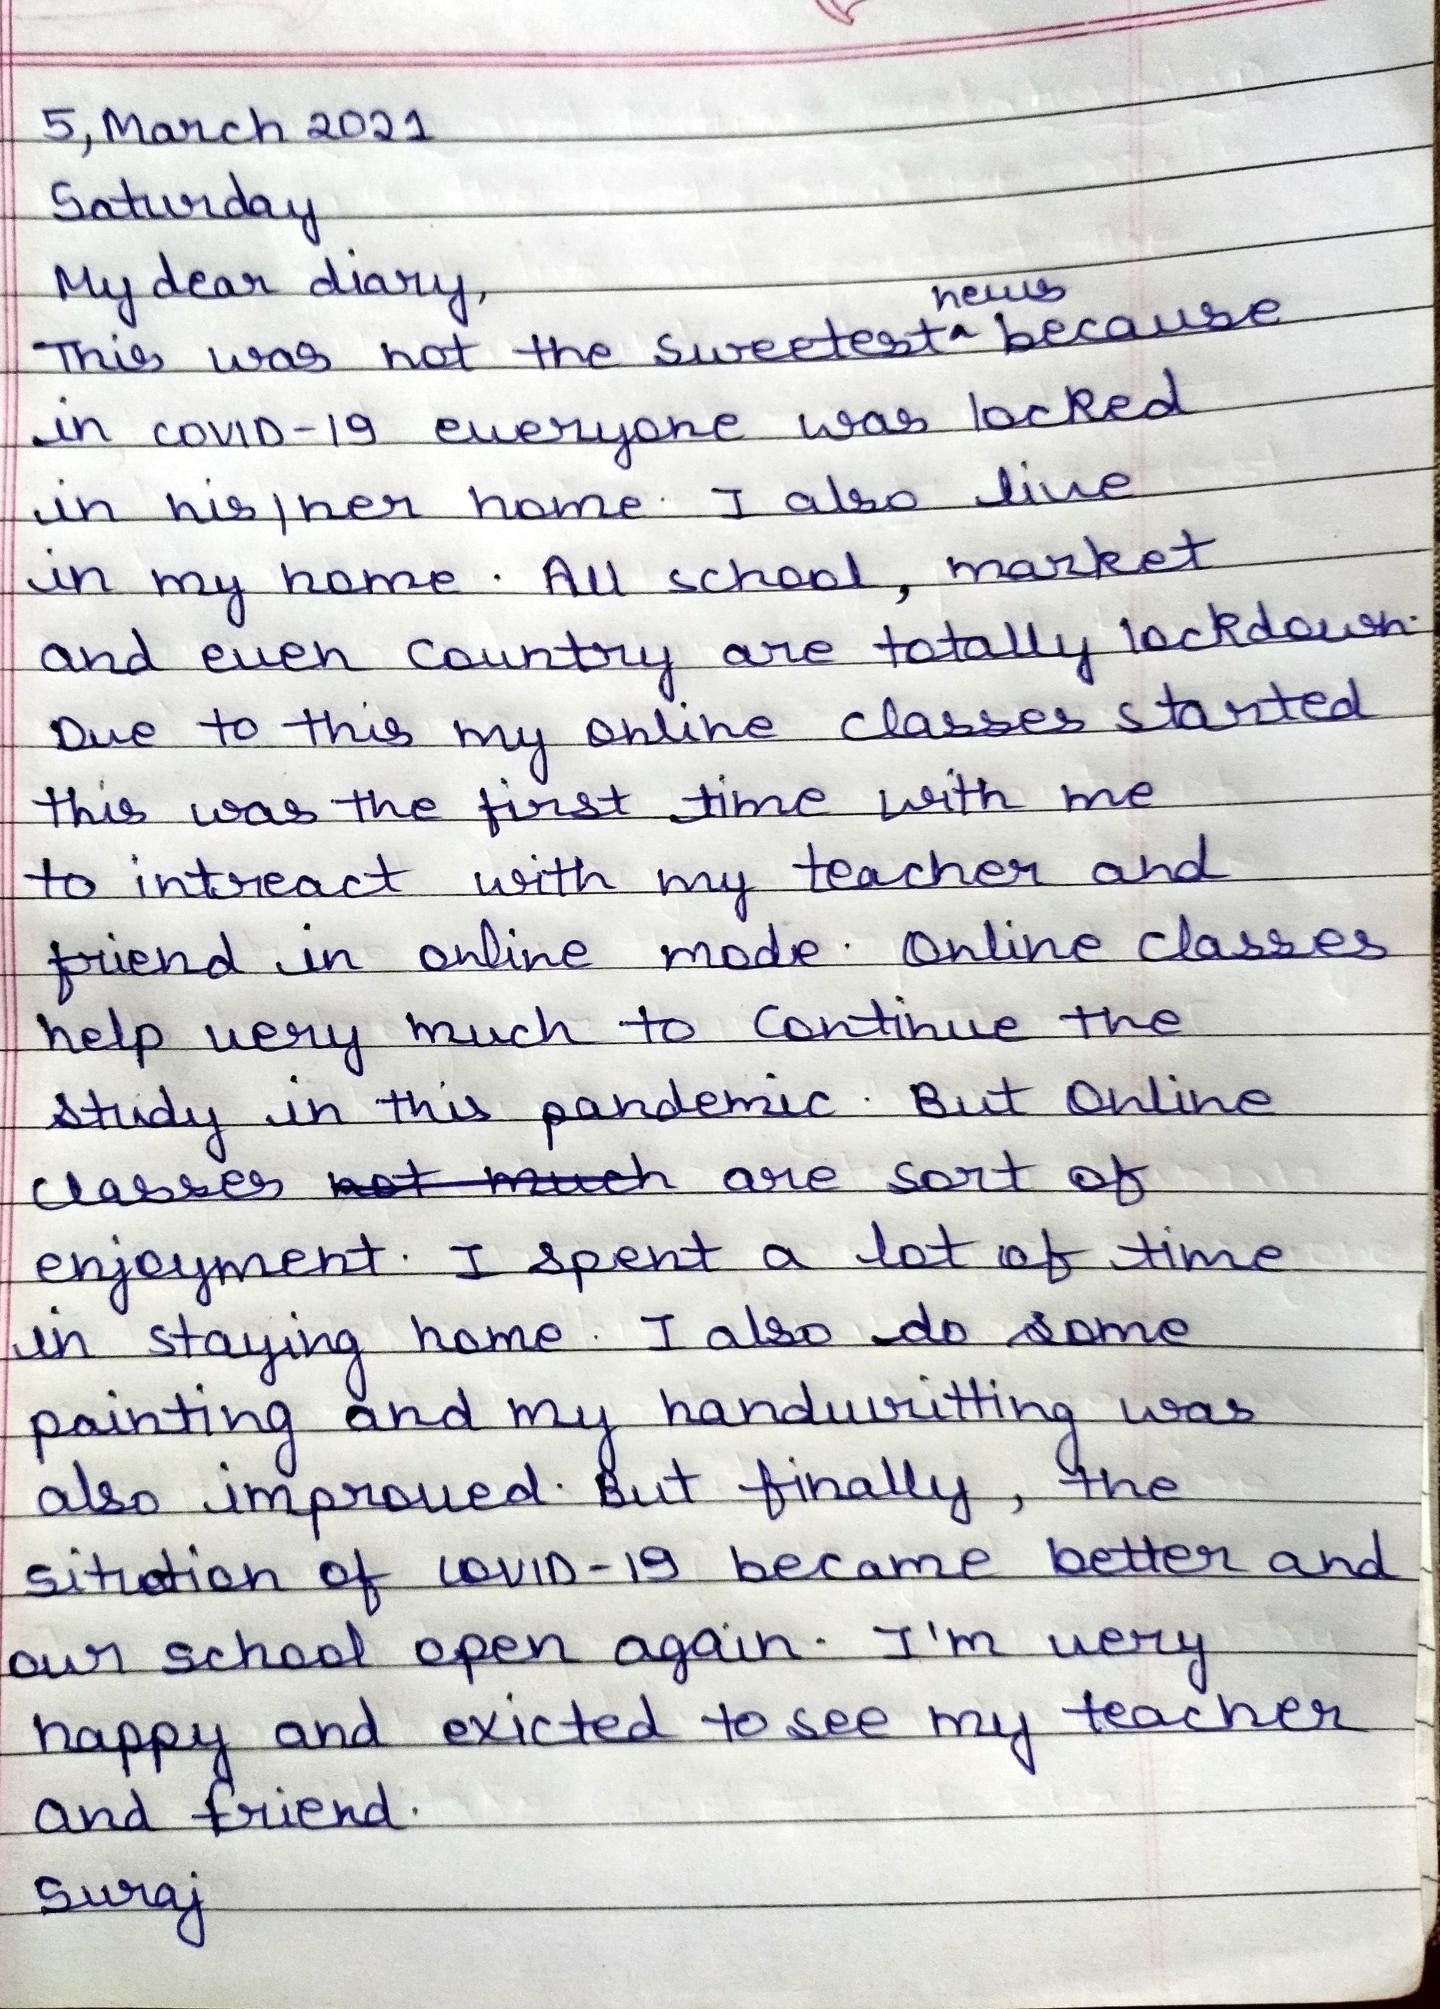 5, March 2021
Saturday
My dear diary,
This was not the sweetest ^ news because
in COVID-19 everyone was locked
in his/her home. I also live
in my home. All school, market
and even country are totally lockdown.
Due to this my online classes started
this was the first time with me
to intreact with my teacher and
friend in online mode. Online classes
help very much to continue the
study in this pandemic. But Online
classes not much are sort of
enjoyment. I spent a lot of time
in staying home. I also do some
painting and my handwritting was
also improved. But finally, the
situation of COVID-19 became better and
our school open again. I'm very
happy and exicted to see my teacher
and friend.
Suraj